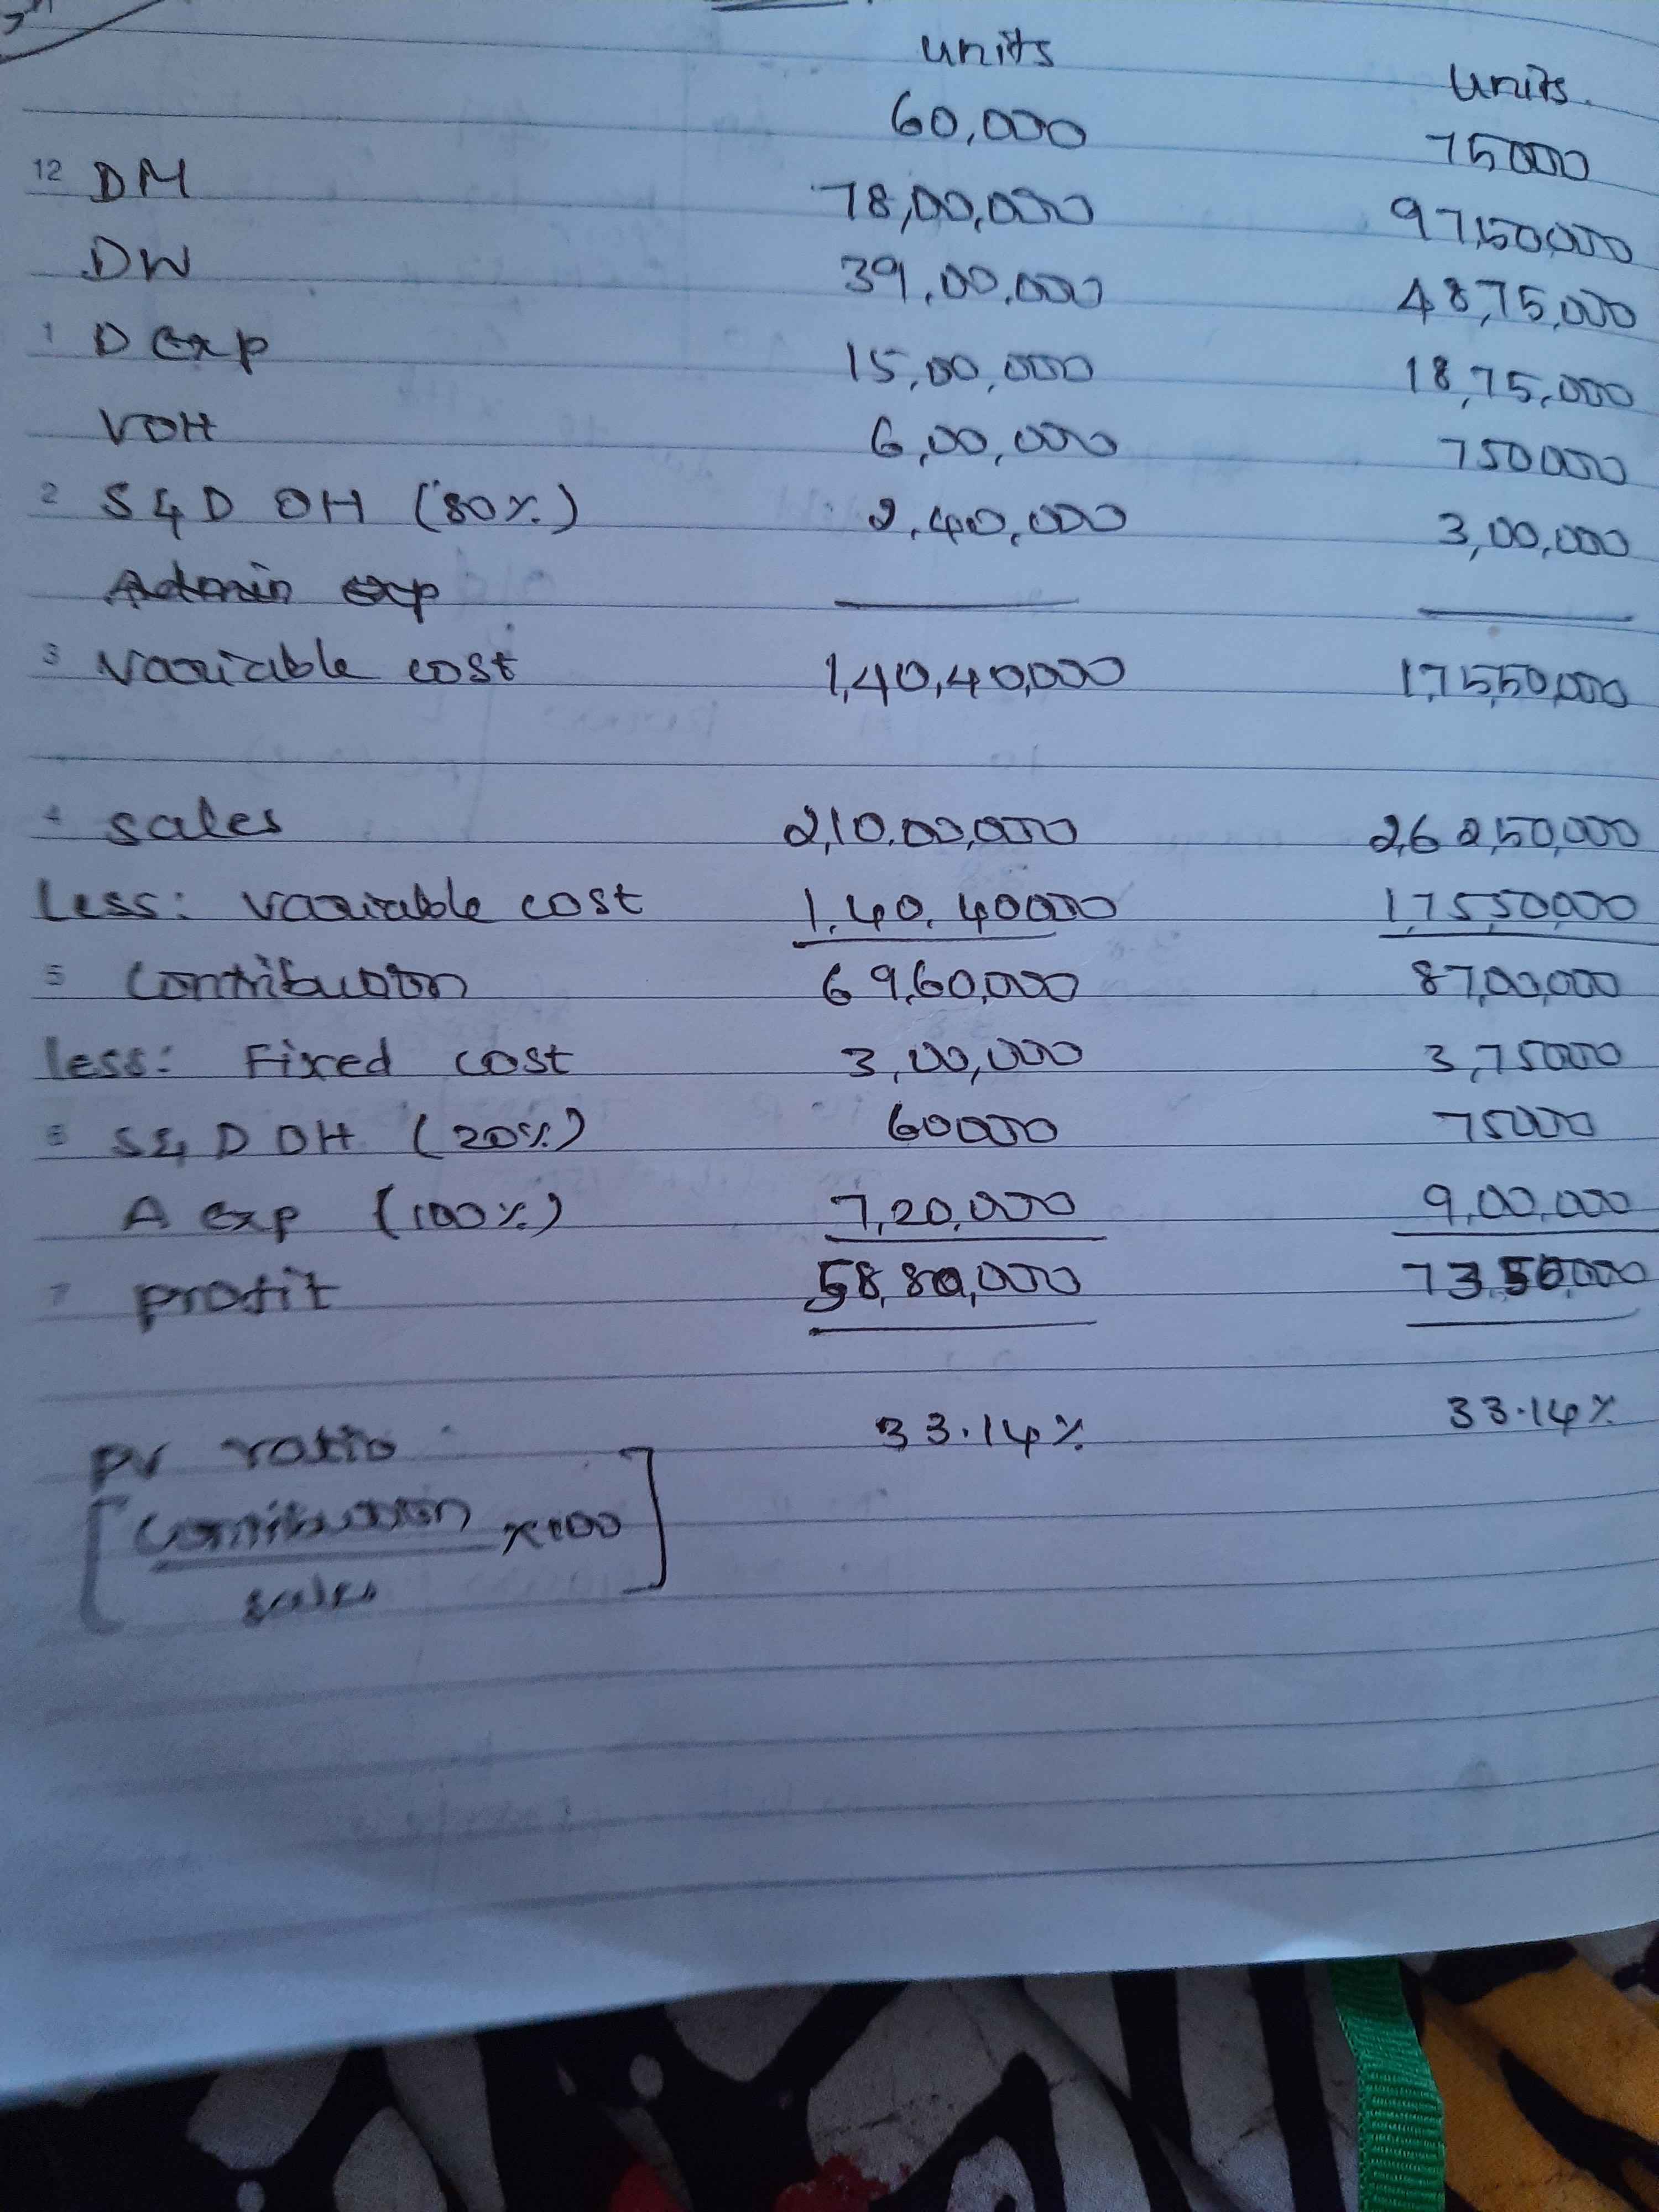 units units
60,000 75000
12 DM 78,00,000 97,50,000
DW 39,00,000 48,75,000
1 D exp 15,00,000 18,75,000
VOH 6,00,000 750000
2 S & D OH (80%) 2,40,000 3,00,000
Admin exp
3 Variable cost 1,40,40,000 1,75,50,000
4 Sales 2,10,00,000 2,62,50,000
Less: variable cost 1,40,40000 1,7550,000
5 Contribution 69,60,000 87,00,000
less: Fixed cost 3,00,000 3,75000
6 S & D OH (20%) 60000 75000
A exp (100%) 7,20,000 9,00,000
7 profit 58,80,000 73,50,000
PV ratio 33.14% 33.14%
[Contribution x100]
sales